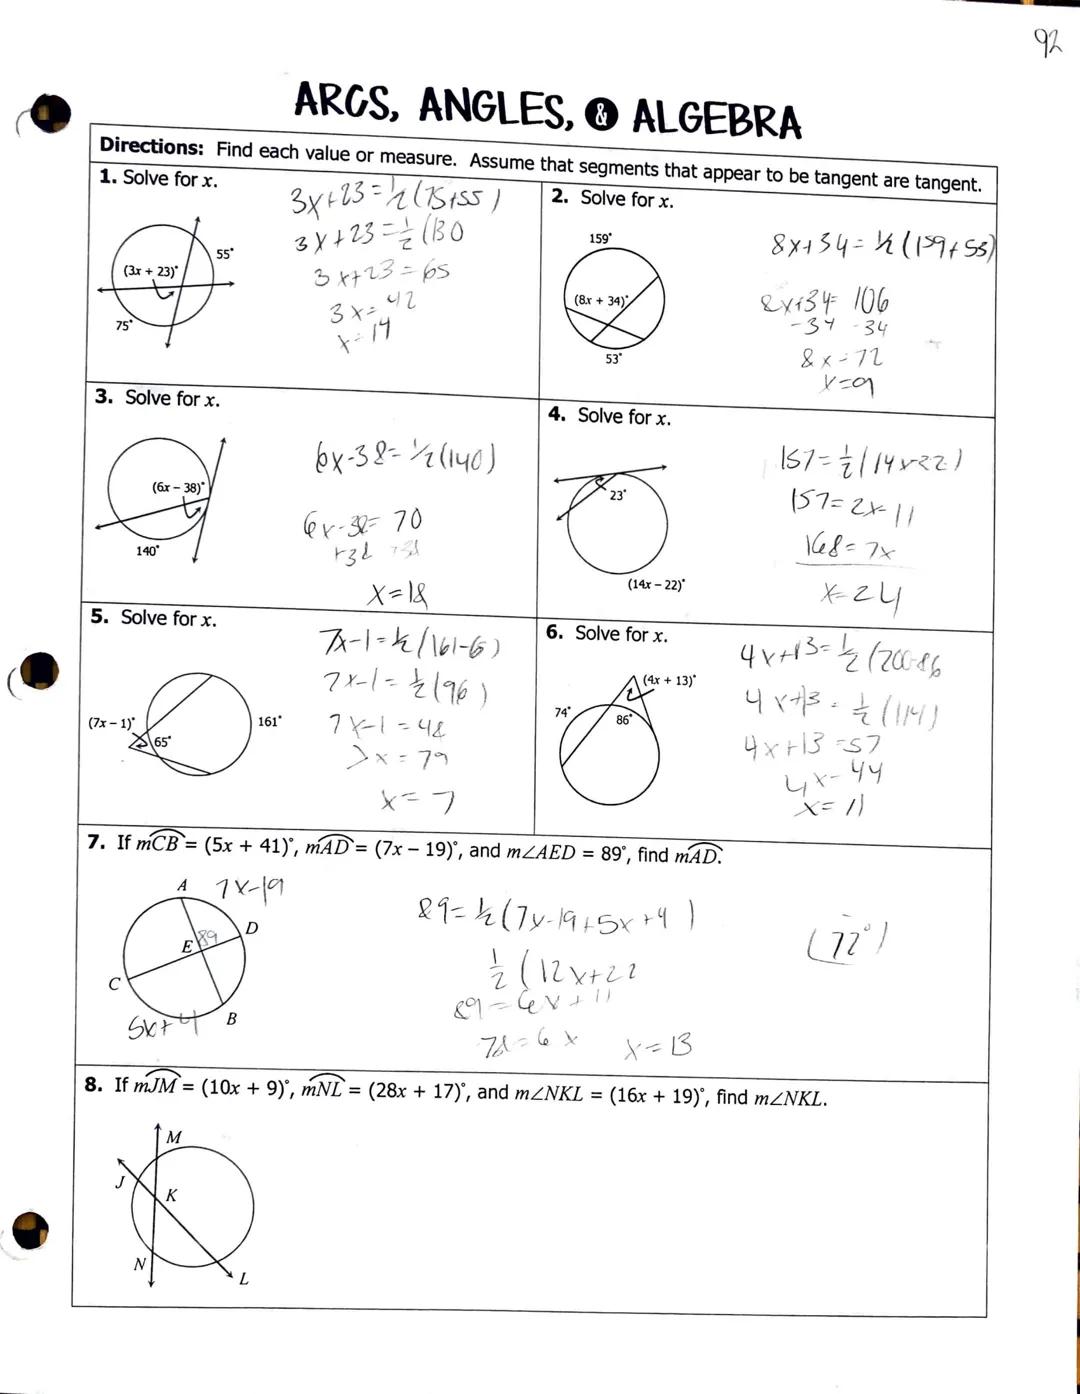 92
ARCS, ANGLES, & ALGEBRA
Directions: Find each value or measure. Assume that segments that appear to be tangent are tangent.
1. Solve for x.
(3x + 23)°
55°
75°
3x+23=½(75+55)
3x+23=½(130
3x+23=65
3x=42
x=14
2. Solve for x.
159°
(8x + 34)°
53°
8x+34=½(159+53)
8x+34=106
-34 -34
8x=72
x=9
3. Solve for x.
(6x – 38)°
140°
6x-38=½(140)
6x-38=70
+38 +38
x=18
4. Solve for x.
23°
(14x – 22)°
157=½(14x-22)
157=2x-11
168=7x
x=24
5. Solve for x.
(7x – 1)°
65°
161°
7x-1=½(161-6)
7x-1=½(96)
7x-1=48
7x=79
x=7
6. Solve for x.
(4x + 13)°
74°
86°
4x+13=½(200-86
4x+13=½(114)
4x+13=57
4x=44
x=11
7. If mCB = (5x + 41)°, mAD = (7x – 19)°, and m∠AED = 89°, find mAD.
A 7x-19
D
E 89
C
B
5x+4
89=½(7x-19+5x+4)
½(12x+22
89=6x+11
78=6x x=13
(72°)
8. If mJM = (10x + 9)°, mNL = (28x + 17)°, and m∠NKL = (16x + 19)°, find m∠NKL.
M
J
K
N
L